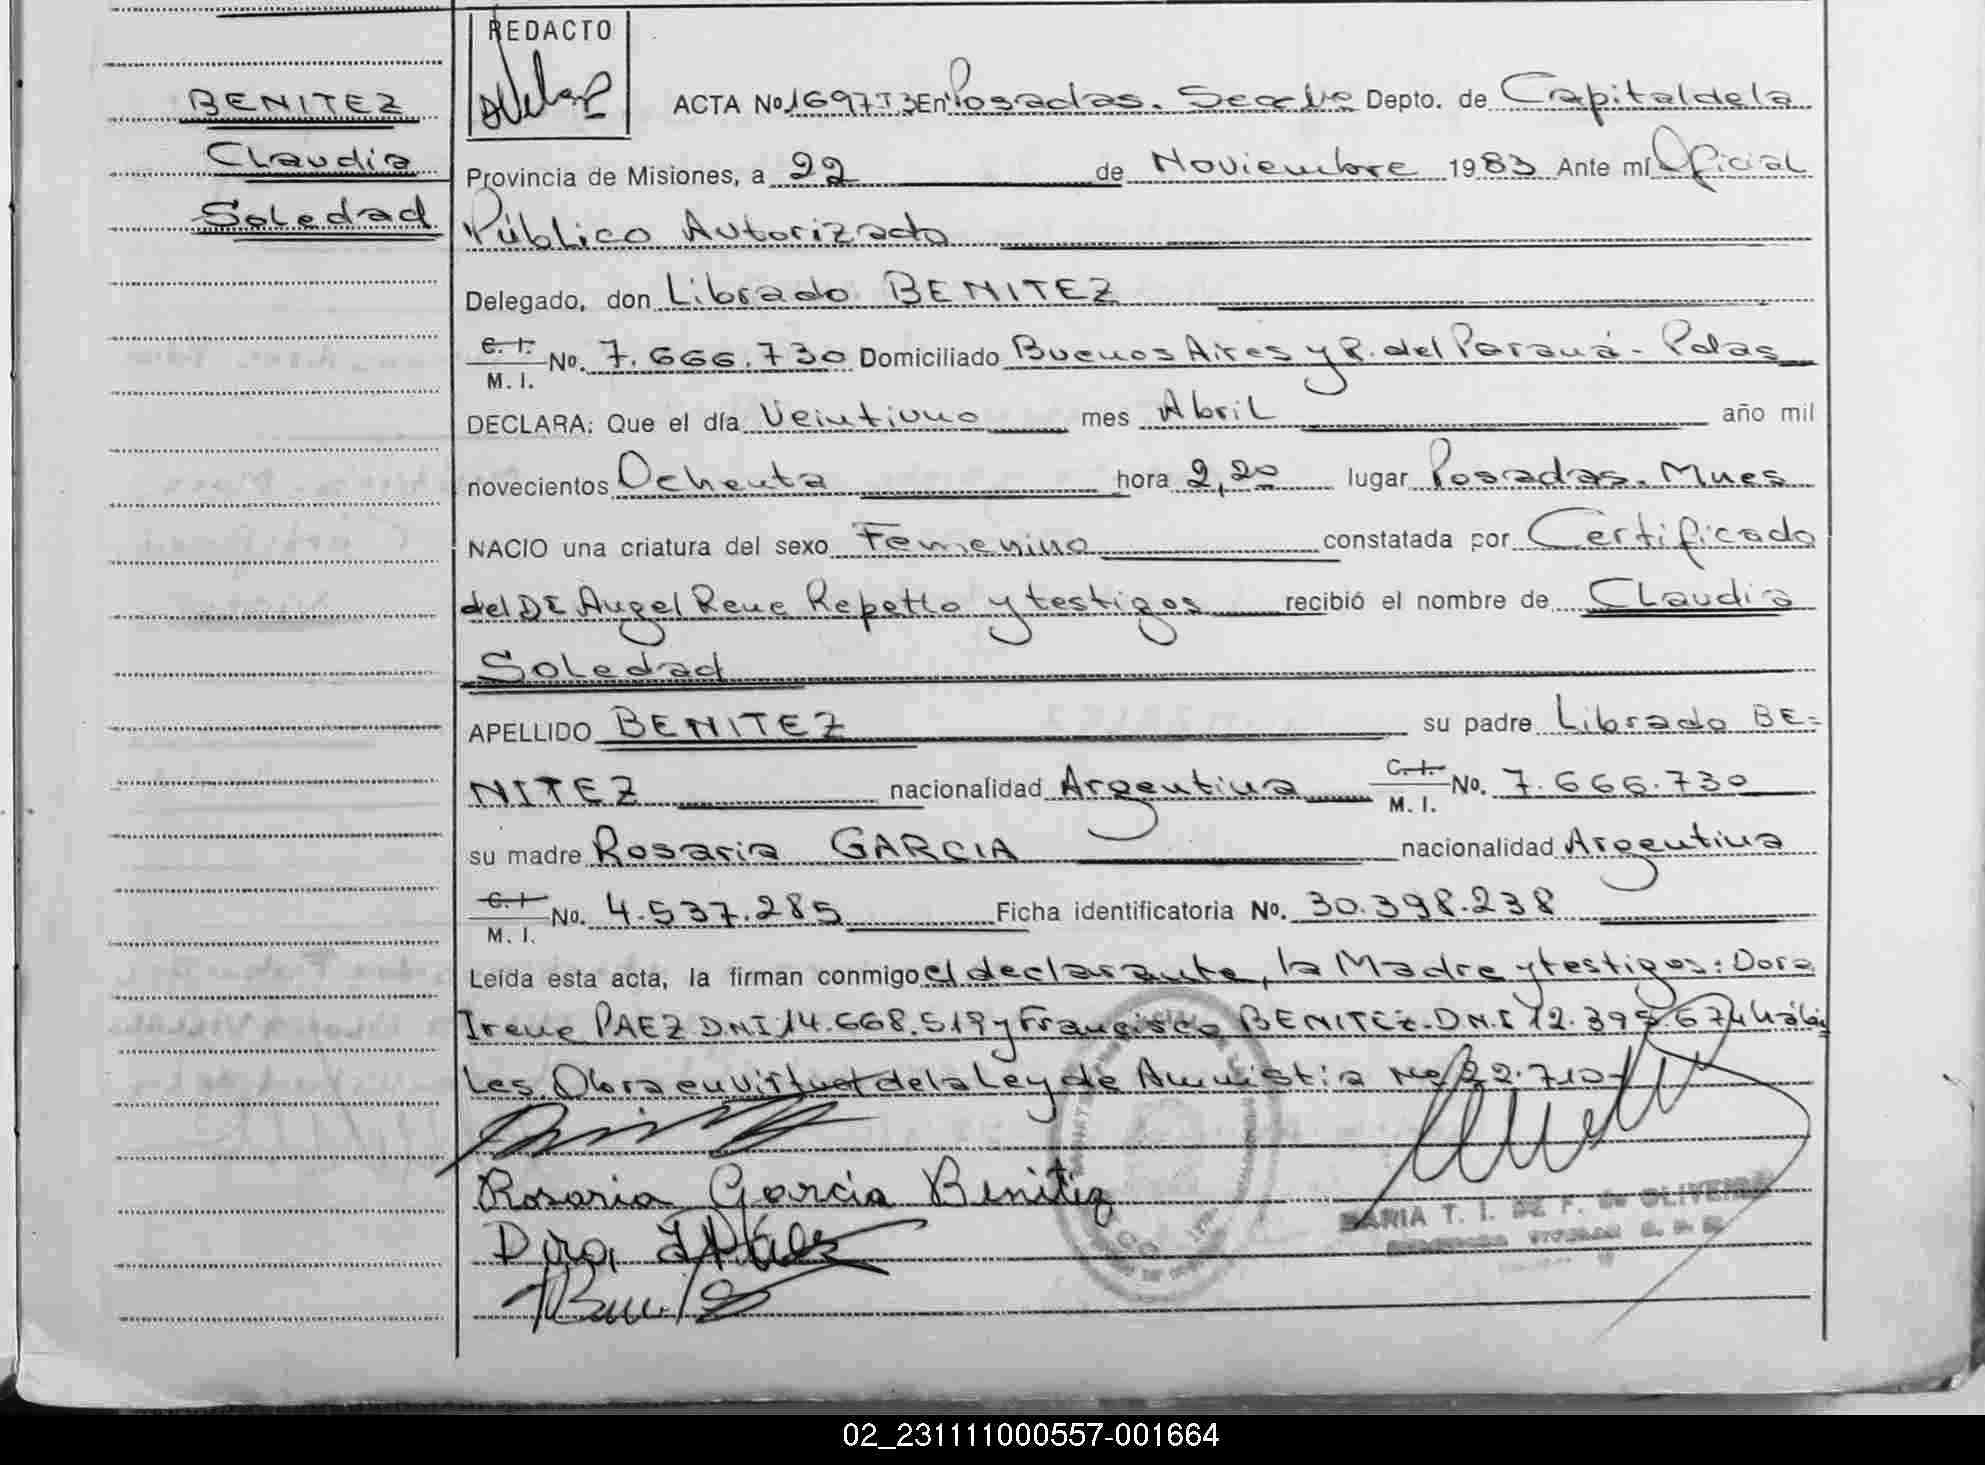 REDACTO
BENITEZ
Claudia
Soledad
ACTA No 1697T3 En Posadas. Depto. de Capital de la
Provincia de Misiones, a 22 de Noviembre 1983 Ante mí Oficial
Público Autorizado
Delegado, don Librado BENITEZ
C. I. M. I. No. 7.666.730 Domiciliado Buenos Aires y R. del Paraná - Pdas
DECLARA: Que el día Veintiuno mes Abril año mil
novecientos Ochenta hora 2,20 lugar Posadas. Mnes
NACIO una criatura del sexo Femenino constatada por Certificado
del Dr Angel Rene Repetto y testigos recibió el nombre de Claudia
Soledad
APELLIDO BENITEZ su padre Librado BE=
NITEZ nacionalidad Argentina C. I. M. I. No. 7.666.730
su madre Rosaria GARCIA nacionalidad Argentina
C. I. M. I. No. 4.537.285 Ficha identificatoria No. 30.398.238
Leída esta acta, la firman conmigo el declarante, la Madre y testigos: Dora
Irene PAEZ DNI 14.668.519 y Francisco BENITEZ. DNI 12.39 674 hábi
les. Obra en virtud de la Ley de Amnistia No 22.710
Rosaria Garcia Benitez
MARIA T. I. DE F. de OLIVEIRA
02_231111000557-001664